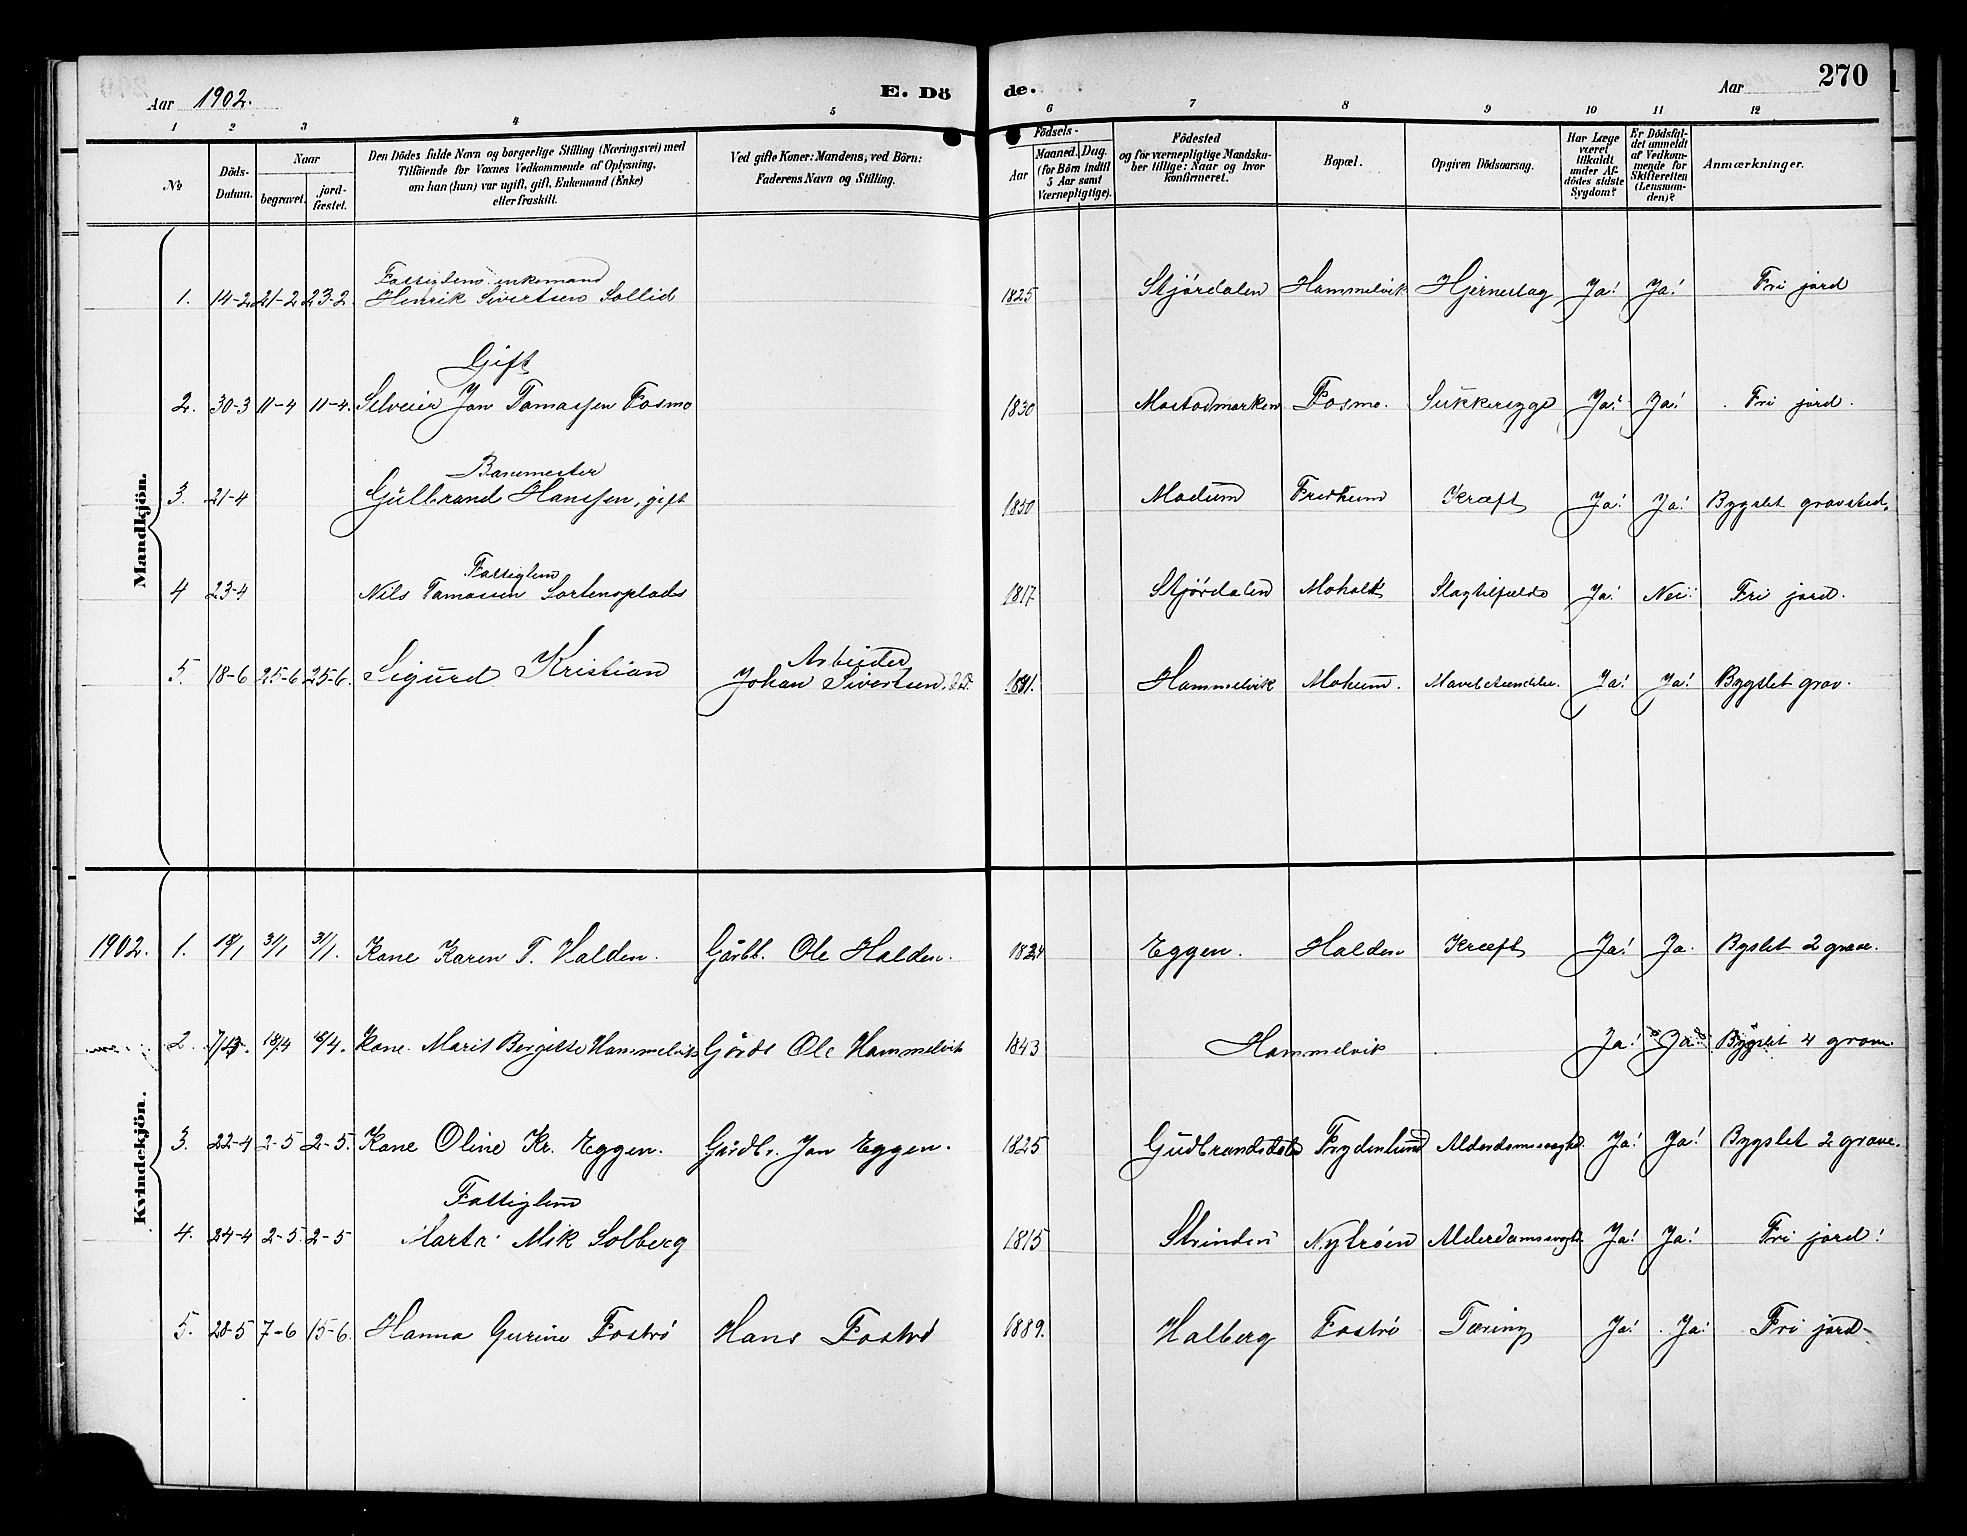 Aar 1902. E. Dö
de. Aar 270
1 2 3 4 5 6 7 8 9 10 11 12
№ Döds-Datum. Naar begravet. jord-fæstet. Den Dödes fulde Navn og borgerlige Stilling (Næringsvei) med Tilföiende for Voxnes Vedkommende af Oplysning, om han (hun) var ugift, gift, Enkemand (Enke) eller fraskilt. Ved gifte Koner: Mandens, ved Börn: Faderens Navn og Stilling. Födsels- Aar Maaned. Dag. (for Börn indtil 5 Aar samt Værnepligtige). Födested og for værnepligtige Mandska-ber tillige: Naar og hvor konfirmeret. Bopæl. Opgiven Dödsaarsag. Har Læge været tilkaldt under Af-dödes sidste Sygdom? Er Dödsfal-det anmeldt af Vedkom-mende for Skifteretten (Lensman-den)? Anmærkninger.
Mandkjön.
Fattiglem enkemand
1. 14-2 21-2 23-2 Henrik Sivertsen Sollid 1825 Stjørdalen Hammelvik Hjerneslag Ja! Ja! Fri jord
Gift
2. 30-3 11-4 11-4. Selveier Jon Tomassen Fosmo 1830 Mostadmarken Fosmo. Sukkersyge Ja! Ja! Fri jord.
Banemester
3. 21-4 Gulbrand Hanssen, gift 1850 Modum Fredheim Kræft Ja! Ja! Bygslet gravsted.
Fattiglem
4 23-4 Nils Tomassen Sortensplads 1817 Stjørdalen Moholt Slagtilfælde Ja! Nei! Fri jord.
Arbeider
5. 18-6 25-6 25-6. Sigurd Kristian Johan Sivertsen Hammelvik Moheim. Mavebetændelse. Ja! Ja! Bygslet grav.
Kvindekjön.
1902. 1. 18/1 31/1 31/1. Kone Karen T. Halden. Gårdb. Ole Halden. 1824 Eggen. Halden Kræft Ja! Ja. Bygslet 2 grave.
2. 18/4 18/4. Kone Marit Bergitte Hammelvik Gårdb Ole Hammelvik 1843 Hammelvik Ja! Ja! Bygslet 4 grave.
3. 22-4 2-5 2-5. Kone Oline Kr. Eggen. Gårdbr. Jon Eggen. 1825 Gudbrandsdalen Frydenlund Alderdomssvaghed. Ja! Ja! Bygslet 2 grave.
Fattiglem
4. 24-4 2-5. 2-5 Marta Mik Solberg 1815 Strinden Nytrøen Alderdomssvaghd. Ja! Ja! Fri jord!
5. 28-5 7-6 15-6. Hanna Gurine Fostrø Hans Fostrø 1889. Halberg Fostrø Tæring Ja! Ja! Fri jord